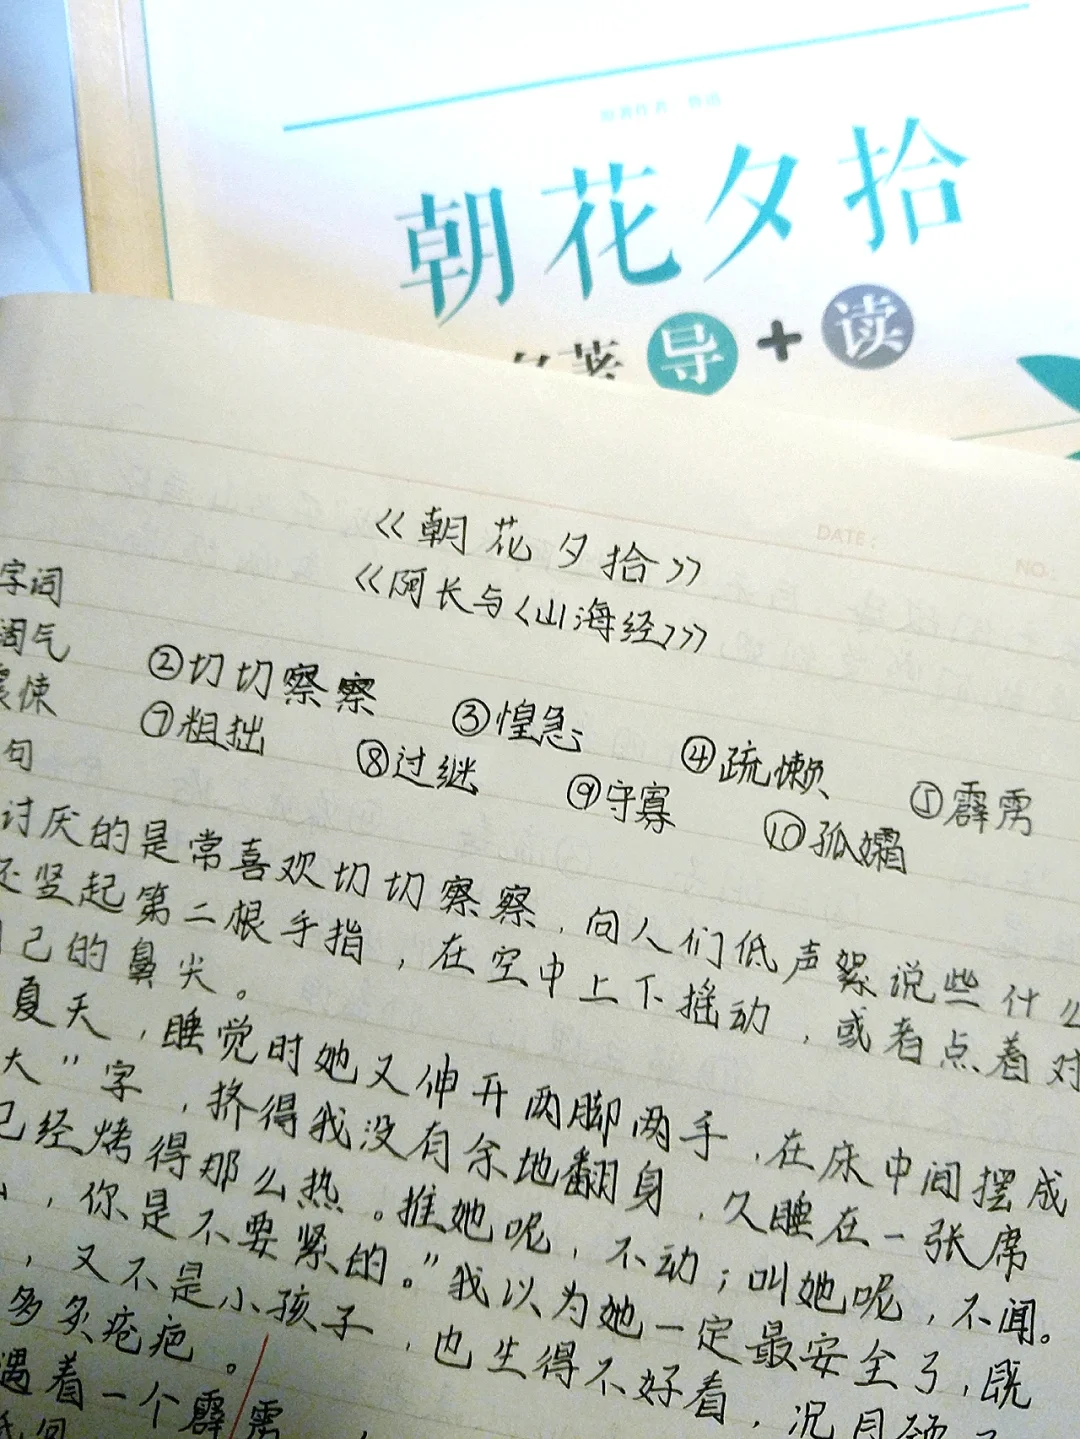 朝花夕拾
名著导+读
《朝花夕拾》
《阿长与〈山海经〉》
字词
阔气 ②切切察察 ③惶急 ④疏懒 ⑤霹雳
震悚 ⑦粗拙 ⑧过继 ⑨守寡 ⑩孤孀
句
讨厌的是常喜欢切切察察,向人们低声絮说些什么
还竖起第二根手指,在空中上下摇动,或者点着对
自己的鼻尖。
夏天,睡觉时她又伸开两脚两手,在床中间摆成
大”字,挤得我没有余地翻身,久睡在一张席
已经烤得那么热。推她呢,不动;叫她呢,不闻。
,你是不要紧的。”我以为她一定最安全了,既
,又不是小孩子,也生得不好看,况且颈子
多灸疮疤。
遇着一个霹雳
DATE:
NO: